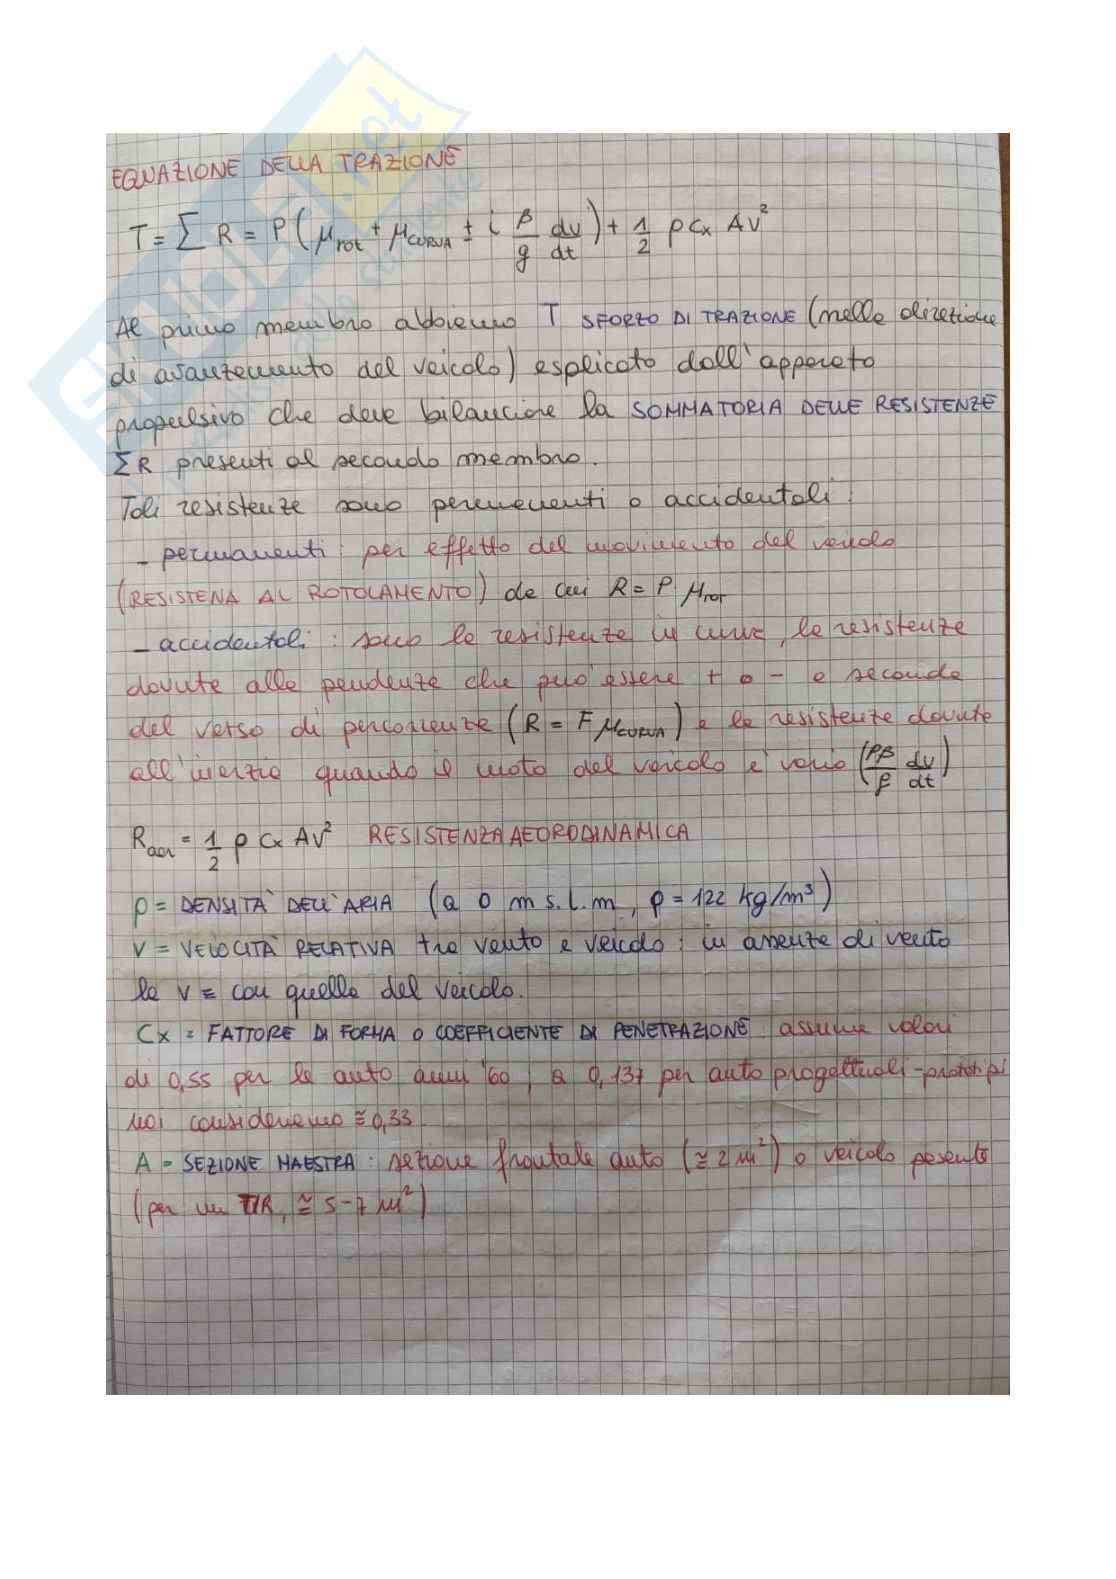 EQUAZIONE DELLA TRAZIONE
T = Σ R = P (μrot + μCURVA ± i β/g dv/dt) + 1/2 ρ Cx AV²
Al primo membro abbiamo T SFORZO DI TRAZIONE (nella direzione
di avanzamento del veicolo) esplicato dall'apparato
propulsivo che deve bilanciare la SOMMATORIA DELLE RESISTENZE
ΣR presenti al secondo membro.
Tali resistenze sono permanenti o accidentali:
- permanenti: per effetto del movimento del veicolo
(RESISTENA AL ROTOLAMENTO) da cui R = P · μrot
- accidentali: sono le resistenze in curva, le resistenze
dovute alle pendenze che può essere + o - a seconda
del verso di percorrenza (R = F μCURVA) e le resistenze dovute
all'inerzia quando il moto del veicolo e' vario (Pβ/β dv/dt)
Raer = 1/2 ρ Cx AV² RESISTENZA AEORODINAMICA
ρ = DENSITÀ DELL'ARIA (a 0 m s.l.m, ρ = 122 kg/m³)
V = VELOCITÀ RELATIVA tra vento e veicolo: in assenza di vento
la V = con quella del veicolo.
Cx = FATTORE DI FORMA O COEFFICIENTE DI PENETRAZIONE assume valori
di 0,55 per le auto anni '60, a 0,137 per auto progettuali-prototipi
noi consideriamo ≅ 0,33
A = SEZIONE MAESTRA: sezione frontale auto (≅ 2 m²) o veicolo pesante
(per un TIR, ≅ 5-7 m²)